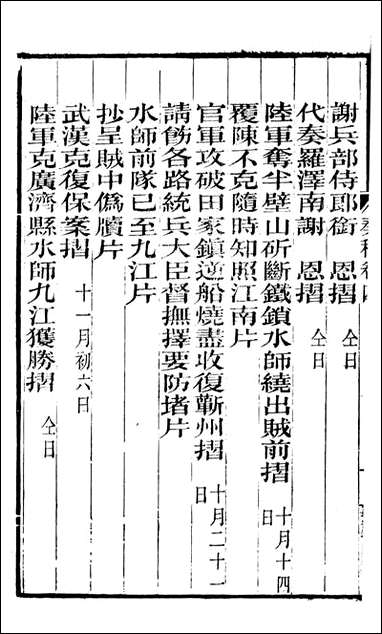 謝兵部侍郎銜　恩摺　仝日
代奏羅澤南謝　恩摺　仝日
陸軍奪半壁山斫斷鐵鎖水師繞出賊前摺　十月十四日
覆陳不克隨時知照江南片
官軍攻破田家鎮逆船燒盡收復蘄州摺　十月二十一日
請飭各路統兵大臣督撫擇要防堵片
水師前隊已至九江片
抄呈賊中僞牘片
武漢克復保案摺　十一月初六日
陸軍克廣濟縣水師九江獲勝摺　仝日